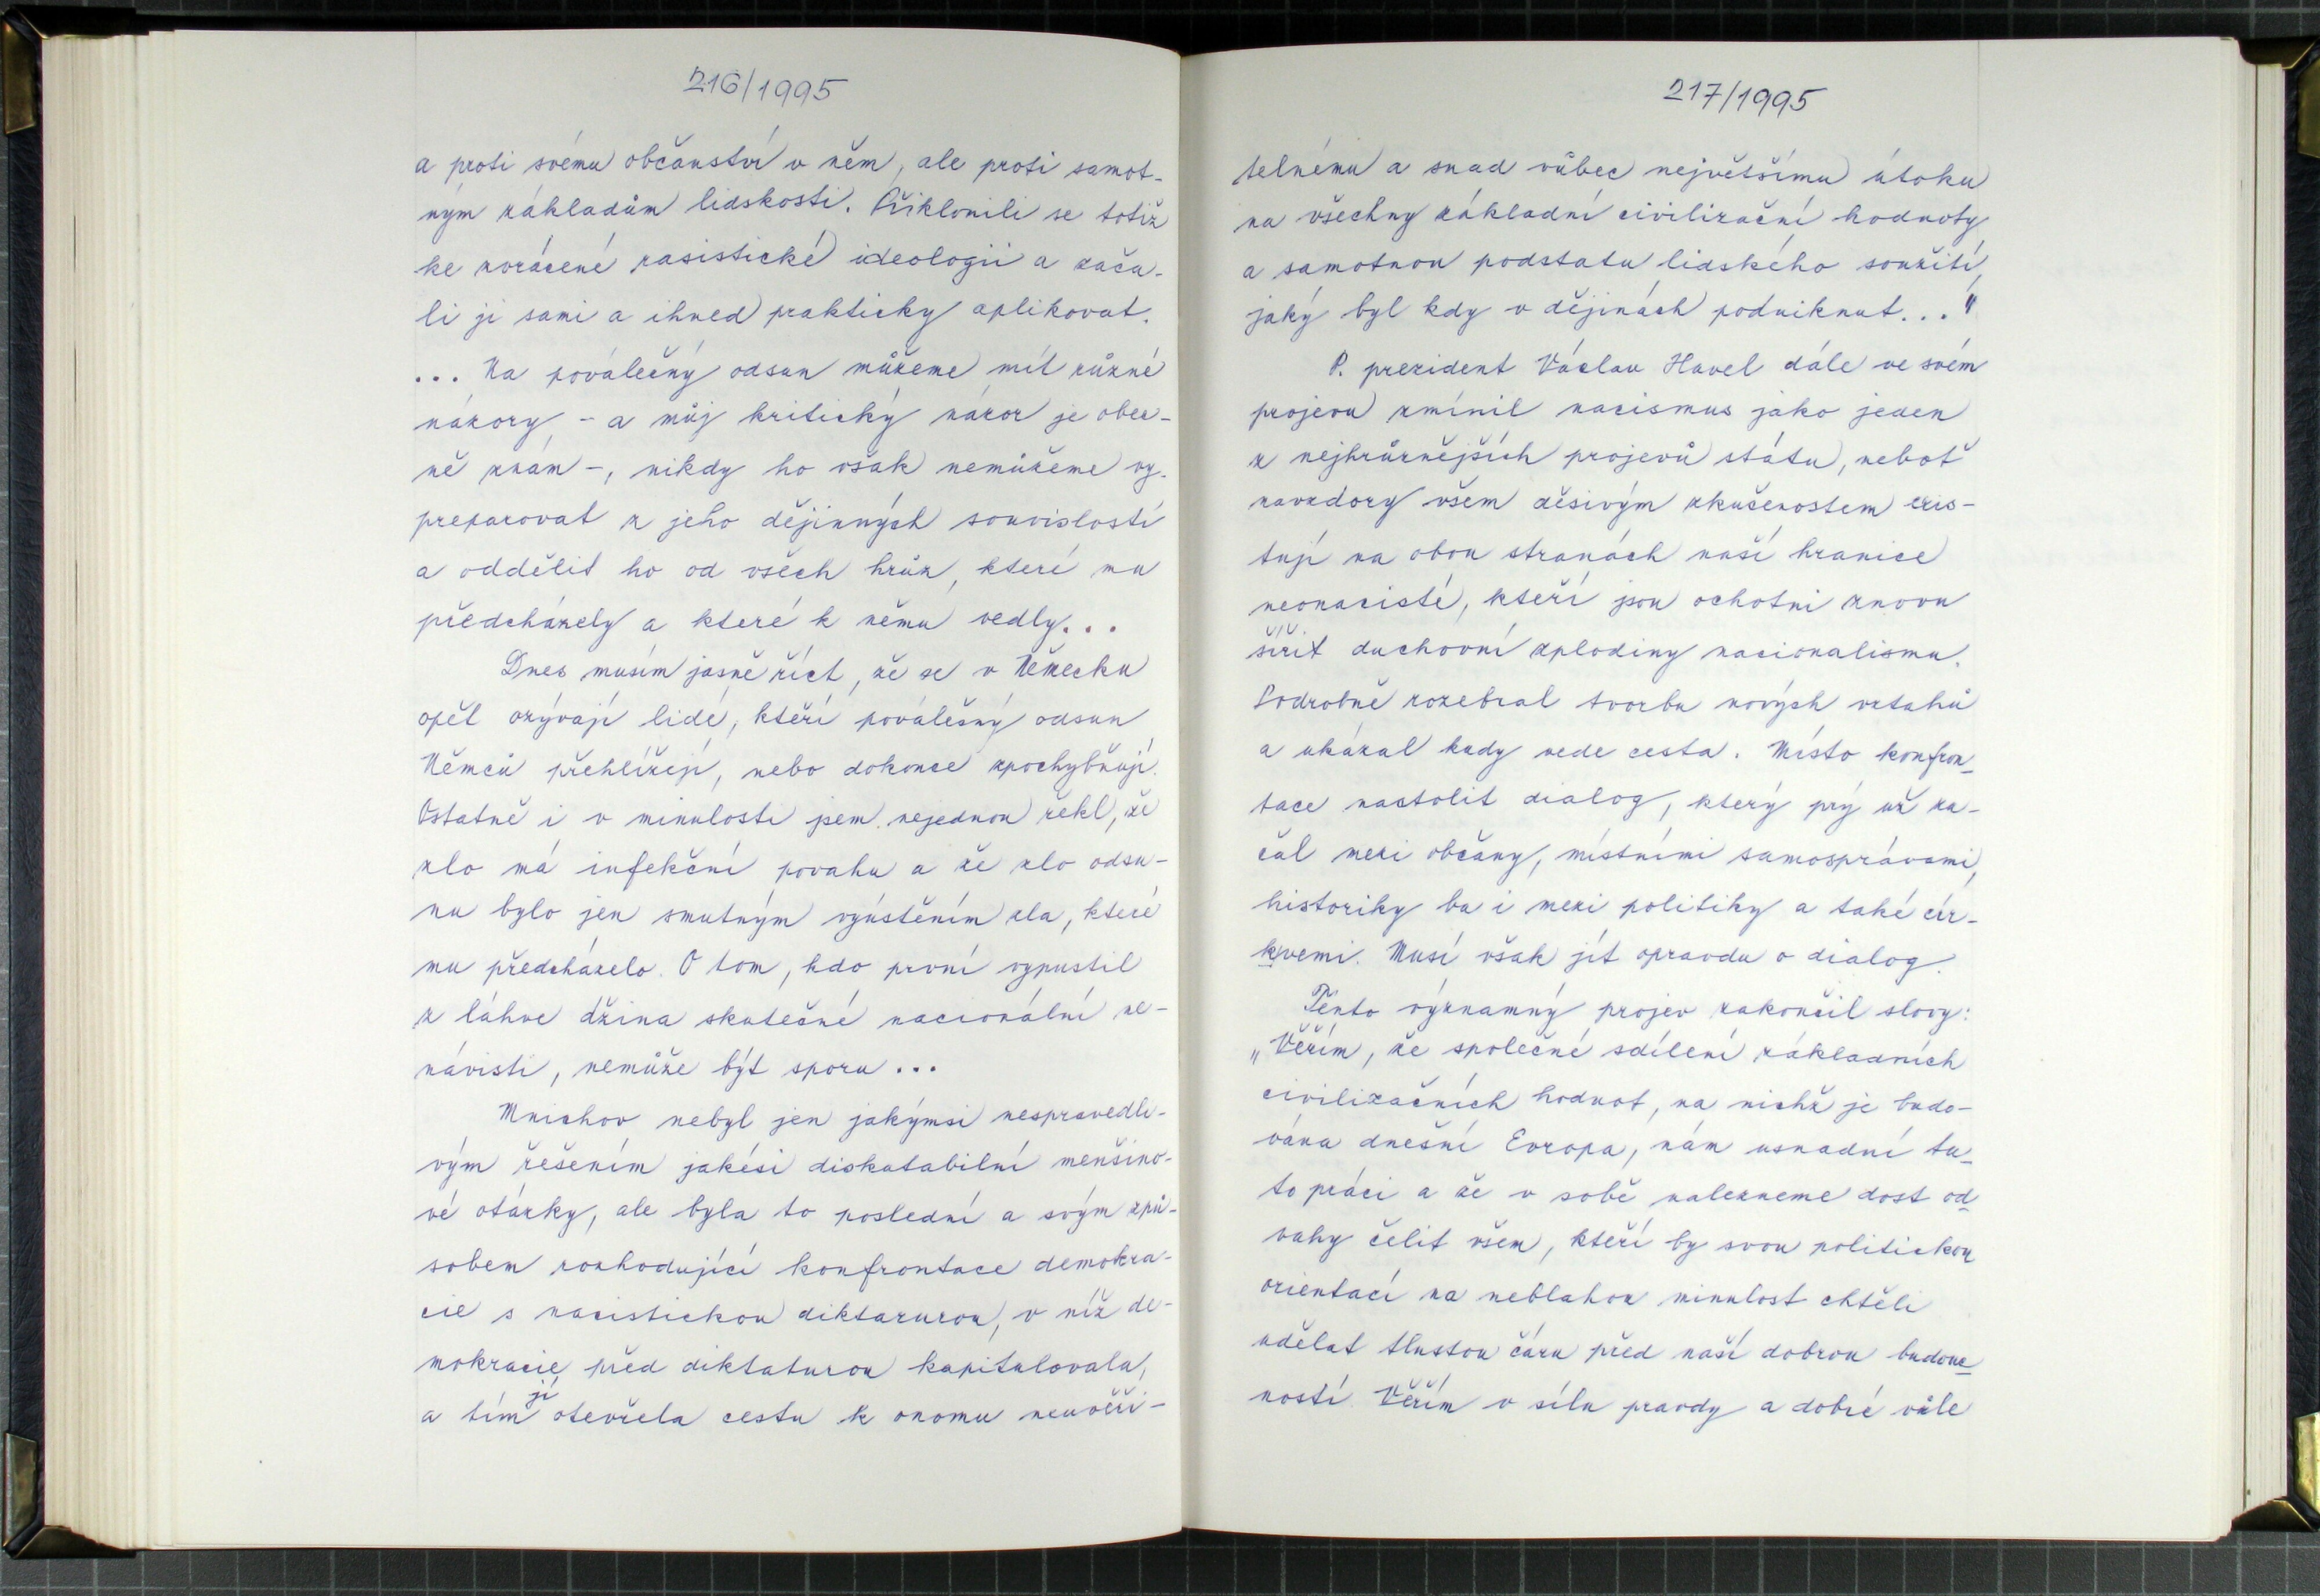 216/1995
a proti svému občanství v něm, ale proti samot-
ným základům lidskosti. Přiklonili se totiž
ke zvrácené rasistické ideologii a zača-
li ji sami a ihned prakticky aplikovat.
... Na poválečný odsun můžeme mít různé
názory, - a můj kritický názor je obec-
ně znám -, nikdy ho však nemůžeme vy-
preparovat z jeho dějinných souvislostí
a oddělit ho od všech hrůz, které mu
předcházely a které k němu vedly...
Dnes musím jasně říct, že se v Německu
opět ozývají lidé, kteří poválečný odsun
Němců přehlížejí, nebo dokonce zpochybňují.
Ostatně i v minulosti jsem nejednou řekl, že
zlo má infekční povahu a že zlo odsu-
nu bylo jen smutným vyústěním zla, které
mu předcházelo. O tom, kdo první vypustil
z láhve džina skutečné nacionální ne-
návisti, nemůže být sporu...
Mnichov nebyl jen jakýmsi nespravedli-
vým řešením jakési diskutabilní menšino-
vé otázky, ale byla to poslední a svým způ-
sobem rozhodující konfrontace demokra-
cie s nacistickou diktarurou, v níž de-
mokracie před diktaturou kapitulovala,
a tím jí otevřela cestu k onomu neuvěři-
217/1995
telnému a snad vůbec největšímu útoku
na všechny základní civilizační hodnoty
a samotnou podstatu lidského soužití,
jaký byl kdy v dějinách podniknut..."
P. prezident Václav Havel dále ve svém
projevu zmínil nacismus jako jeden
z nejhrůznějších projevů státu, neboť
navzdory všem děsivým zkušenostem exis-
tují na obou stranách naší hranice
neonacisté, kteří jsou ochotni znovu
šířit duchovní zplodiny nacionalismu.
Podrobně rozebral tvorbu nových vztahů
a ukázal kudy vede cesta. Místo konfron-
tace nastolit dialog, který prý už za-
čal mezi občany, místními samosprávami,
historiky ba i mezi politiky a také cír-
kvemi. Musí však jít opravdu o dialog.
Tento významný projev zakončil slovy:
"Věřím, že společné sdílení základních
civilizačních hodnot, na nichž je budo-
vána dnešní Evropa, nám usnadní tu-
to práci a že v sobě nalezneme dost od-
vahy čelit všem, kteří by svou politickou
orientací na neblahou minulost chtěli
udělat tlustou čáru před naší dobrou budouc-
ností. Věřím v sílu pravdy a dobré vůle